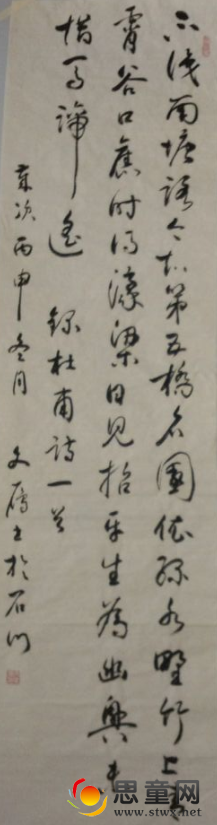 不识南塘路今知第五桥名园依绿水野竹上青
霄谷口舊时得濠梁日见招平生為幽興未
惜馬蹄遙　録杜甫诗一首
歲次丙申冬月　文雁书於石门
思童网
www.stwx.net